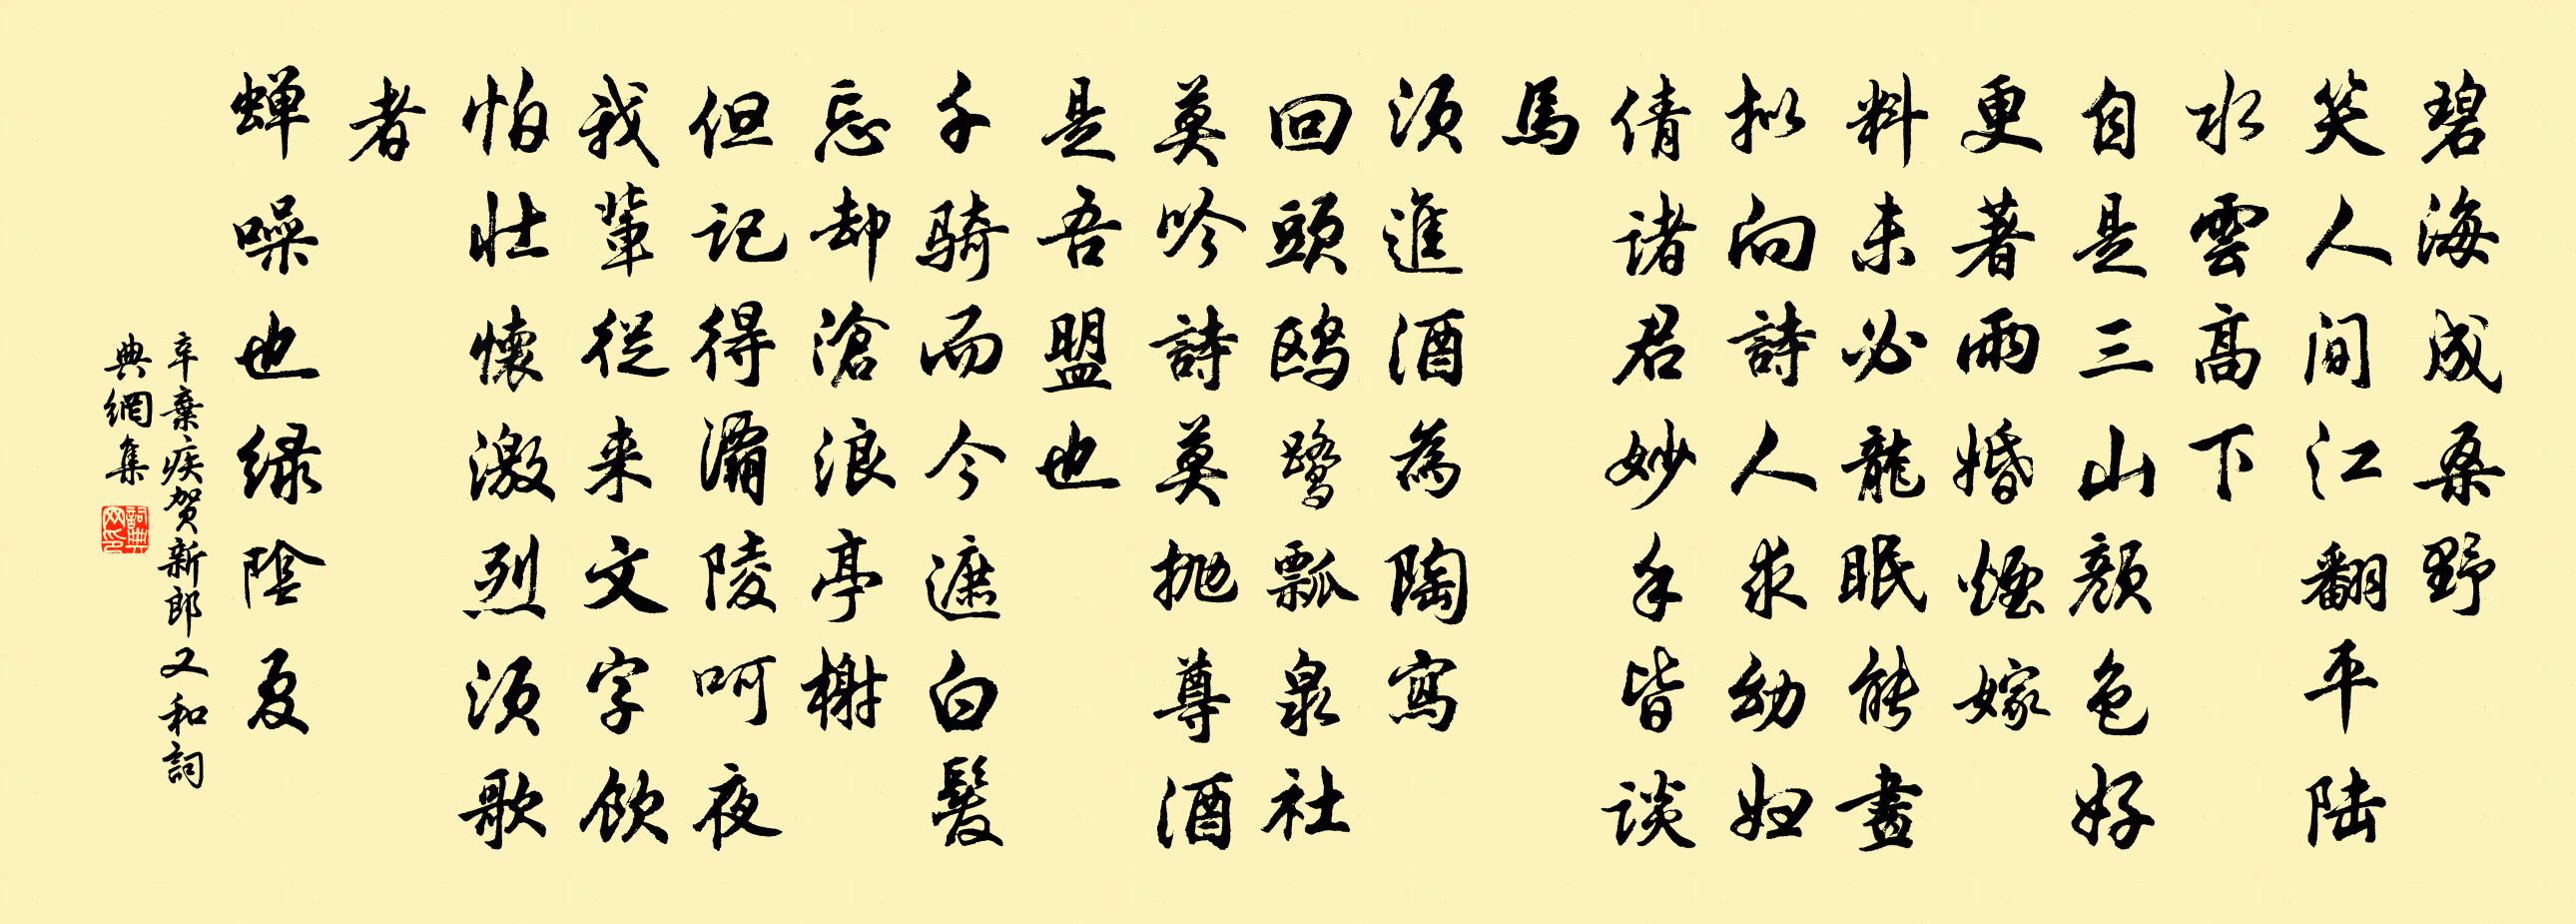 碧海成桑野
笑人间江翻平陆
水雲高下
自是三山颜色好
更著雨婚煙嫁
料未必龍眠能畫
拟向詩人求幼妇
倩诸君妙手皆谈
馬
须進酒為陶寫
回頭鸥鹭瓢泉社
莫吟詩莫抛尊酒
是吾盟也
千骑而今遮白髪
忘却滄浪亭榭
但记得灞陵呵夜
我輩從来文字飲
怕壮懷激烈须歌
者
蝉噪也绿陰夏
辛棄疾贺新郎又和詞
典網集
詞典网印